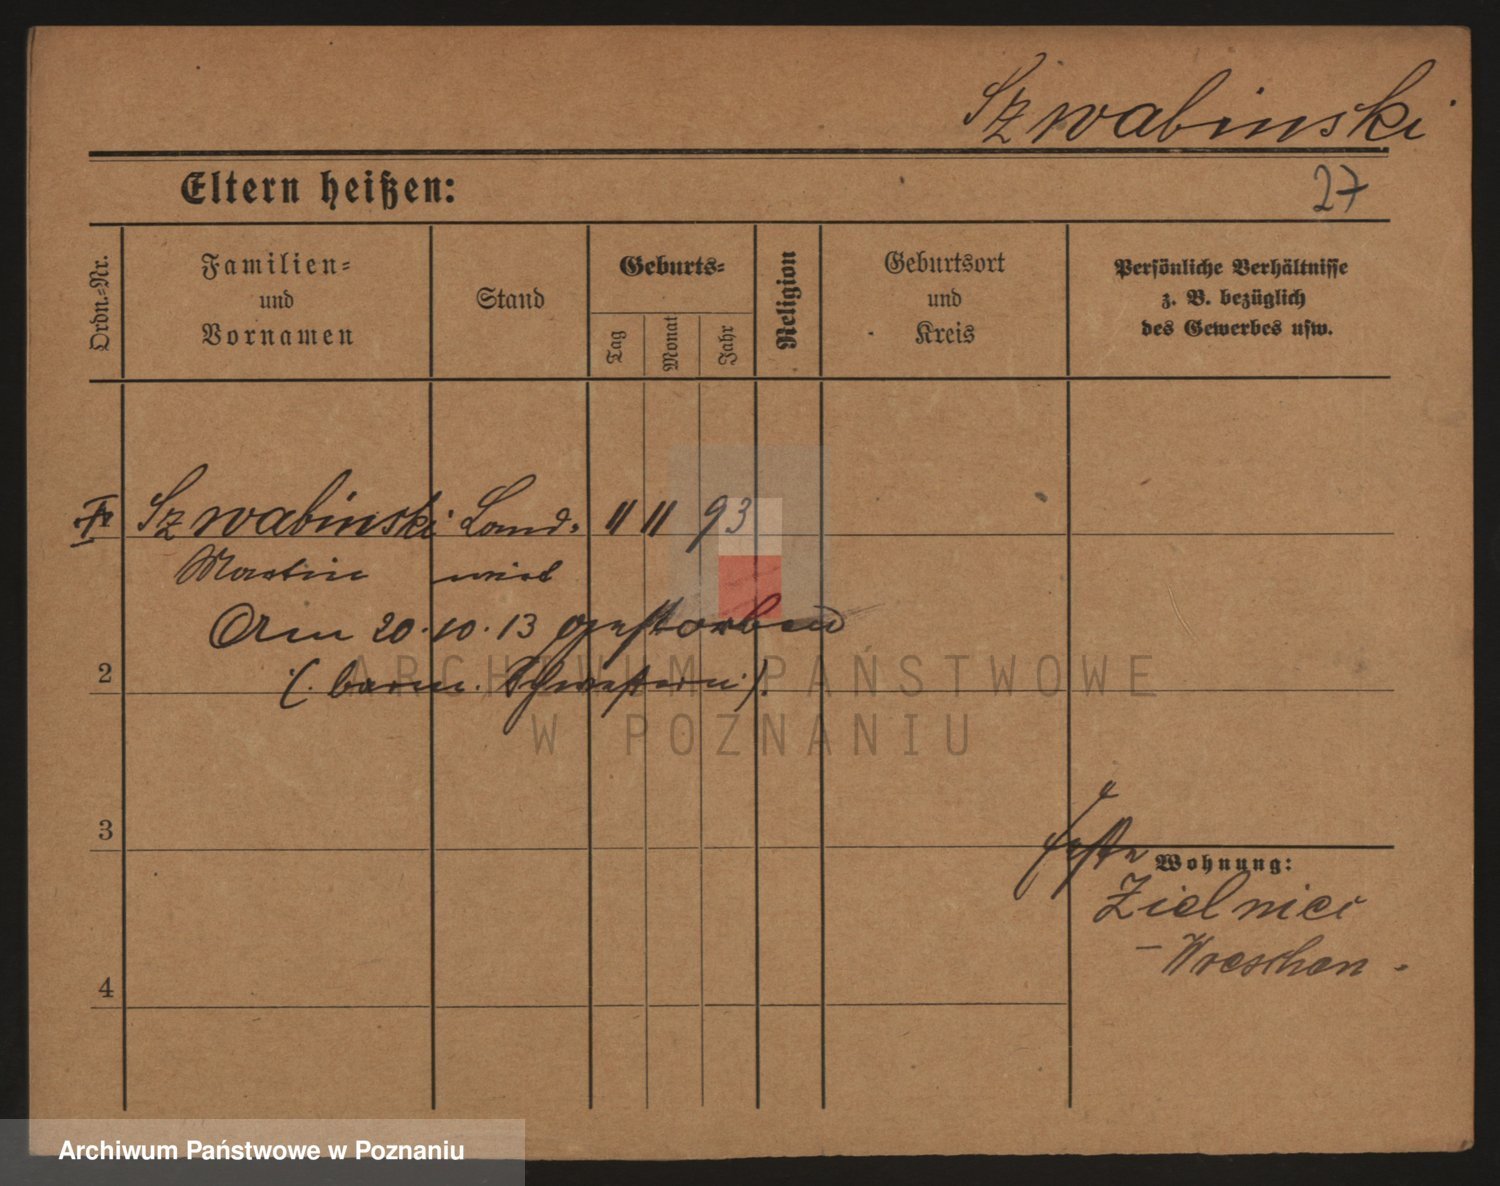 Szwabinski
Eltern heißen:
27
Ordn.-Nr.
Familien-
und
Vornamen
Stand
Geburts-
Tag
Monat
Jahr
Religion
Geburtsort
und
Kreis
Persönliche Verhältnisse
z. B. bezüglich
des Gewerbes usw.
Szwabinski Land- 11 11 93
Martin wirt
Am 20.10.13 gestorben
2 (barm. Schwestern).
3
Wohnung:
Zielnice
- Wreschen -
4
ARCHIWUM PAŃSTWOWE
W POZNANIU
Archiwum Państwowe w Poznaniu